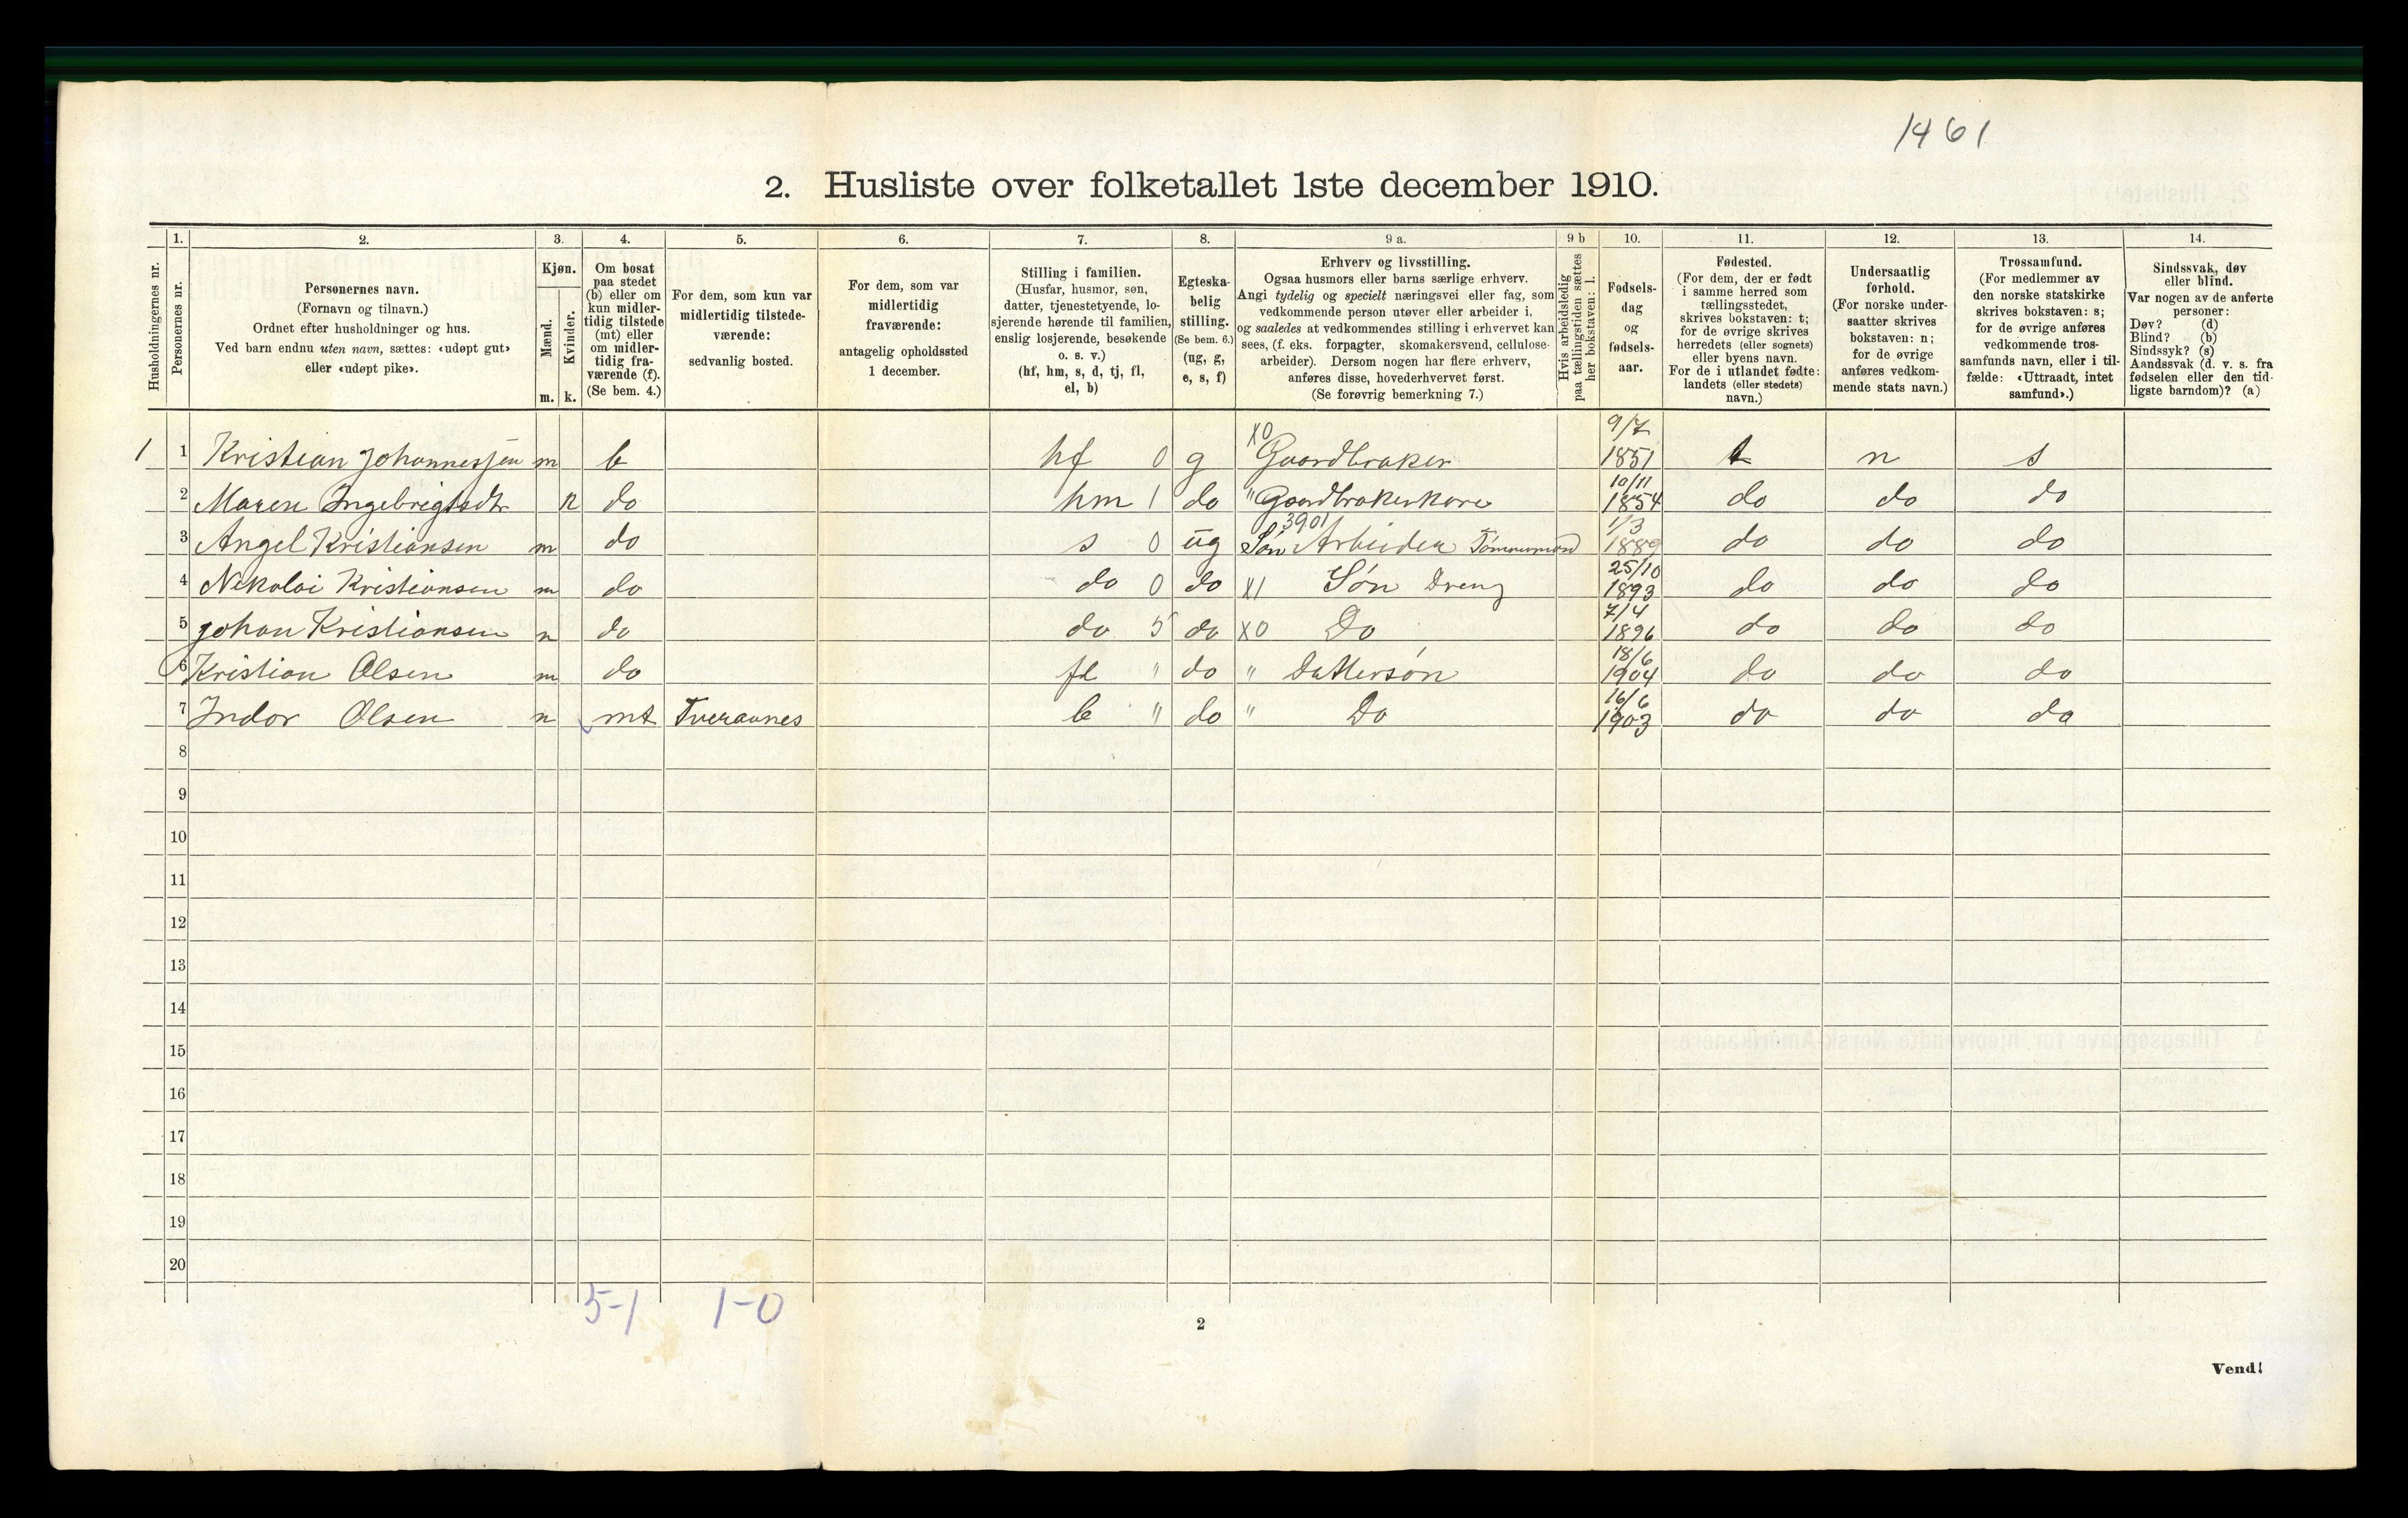 1461
2. Husliste over folketallet 1ste december 1910.
1. 2. 3. 4. 5. 6. 7. 8. 9 a. 9 b 10. 11. 12. 13. 14.
Husholdningernes nr.
Personernes nr.
Personernes navn.
(Fornavn og tilnavn.)
Ordnet efter husholdninger og hus.
Ved barn endnu uten navn, sættes: «udøpt gut»
eller «udøpt pike».
Kjøn.
Mænd.
Kvinder.
m. k.
Om bosat
paa stedet
(b) eller om
kun midler-
tidig tilstede
(mt) eller
om midler-
tidig fra-
værende (f).
(Se bem. 4.)
For dem, som kun var
midlertidig tilstede-
værende:
sedvanlig bosted.
For dem, som var
midlertidig
fraværende:
antagelig opholdssted
1 december.
Stilling i familien.
(Husfar, husmor, søn,
datter, tjenestetyende, lo-
sjerende hørende til familien,
enslig losjerende, besøkende
o. s. v.)
(hf, hm, s, d, tj, fl,
el, b)
Egteska-
belig
stilling.
(Se bem. 6.)
(ug, g,
e, s, f)
Erhverv og livsstilling.
Ogsaa husmors eller barns særlige erhverv.
Angi tydelig og specielt næringsvei eller fag, som
vedkommende person utøver eller arbeider i,
og saaledes at vedkommendes stilling i erhvervet kan
sees, (f. eks. forpagter, skomakersvend, cellulose-
arbeider). Dersom nogen har flere erhverv,
anføres disse, hovederhvervet først.
(Se forøvrig bemerkning 7.)
Hvis arbeidsledig
paa tællingstiden sættes
her bokstaven: l.
Fødsels-
dag
og
fødsels-
aar.
Fødested.
(For dem, der er født
i samme herred som
tællingsstedet,
skrives bokstaven: t;
for de øvrige skrives
herredets (eller sognets)
eller byens navn.
For de i utlandet fødte:
landets (eller stedets)
navn.)
Undersaatlig
forhold.
(For norske under-
saatter skrives
bokstaven: n;
for de øvrige
anføres vedkom-
mende stats navn.)
Trossamfund.
(For medlemmer av
den norske statskirke
skrives bokstaven: s;
for de øvrige anføres
vedkommende tros-
samfunds navn, eller i til-
fælde: «Uttraadt, intet
samfund».)
Sindssvak, døv
eller blind.
Var nogen av de anførte
personer:
Døv? (d)
Blind? (b)
Sindssyk? (s)
Aandssvak (d. v. s. fra
fødselen eller den tid-
ligste barndom)? (a)
1 1 Kristian Johannessen m b hf 0 g X0 Gaardbruker 9/7 1851 t n s
2 Maren Ingebrigtsdtr k do hm 1 do " Gaardbrukerkone 10/11 1854 do do do
3 Angel Kristiansen m do s 0 ug 3901 Søn Arbeider Tømmermand 1/3 1889 do do do
4 Nikolai Kristiansen m do do 0 do X1 Søn Dreng 25/10 1893 do do do
5 Johan Kristiansen m do do 5 do X0 Do 7/4 1896 do do do
6 Kristian Olsen m do fl " do " Dattersøn 18/6 1904 do do do
7 Indor Olsen m mt Tveraunes b " do " Do 16/6 1903 do do do
8
9
10
11
12
13
14
15
16
17
18
19
20
5-1 1-0
2
Vend!